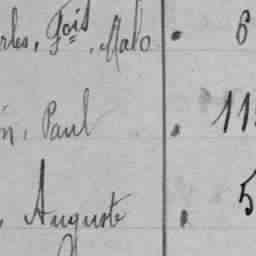 rles, Fois, Malo . 6
n, Paul . 11
, Auguste . 5